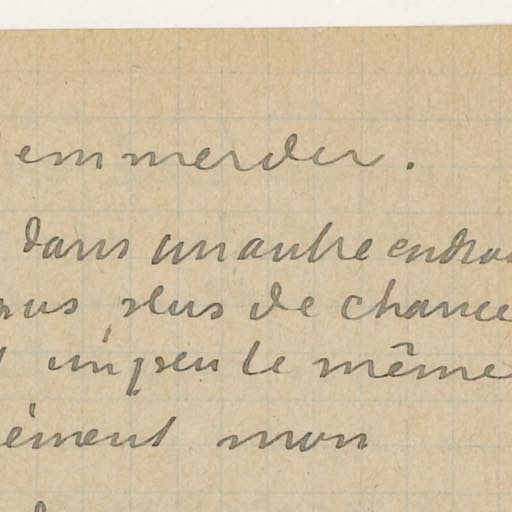 emmerder.
dans un autre endroi
ous plus de chance
un peu le même
ément mon